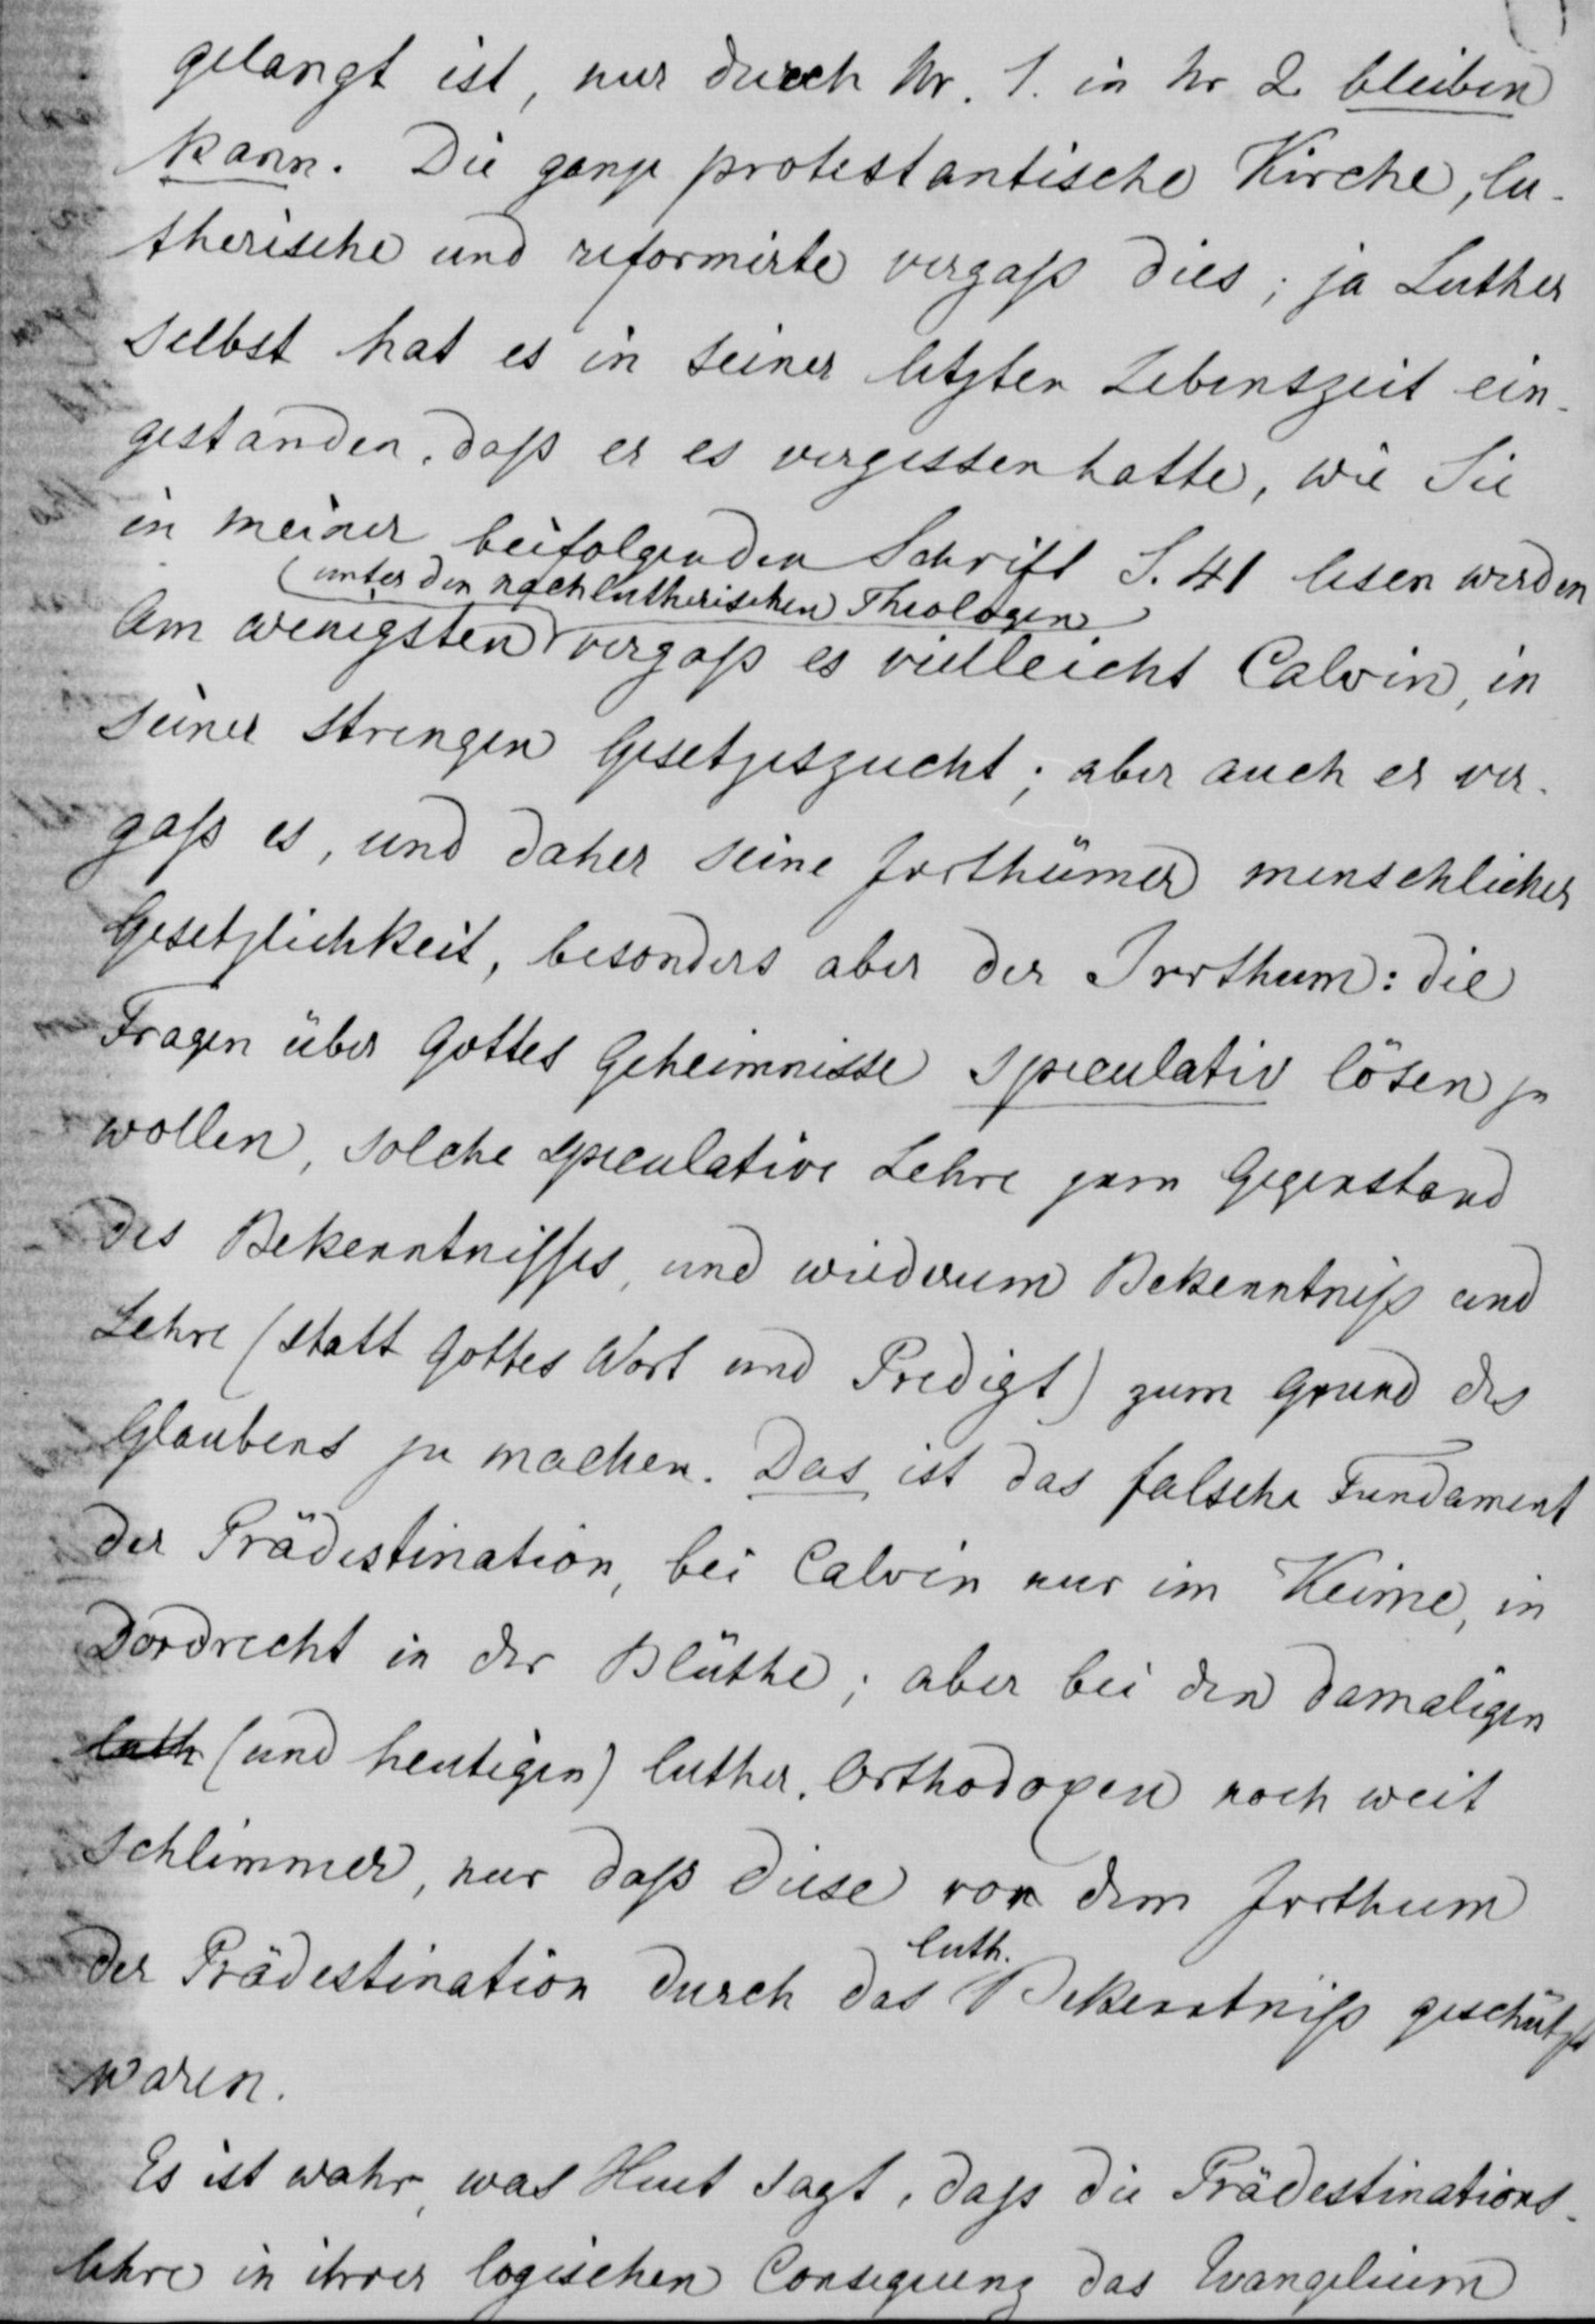 gelangt ist, nur durch Nr. 1. in Nr 2 bleiben
kann. Die ganze protestantische Kirche, lu-
therische und reformirte vergaß dies; ja Luther
selbst hat es in seiner letzten Lebenszeit ein-
gestanden, daß er es vergessen hatte, wie Sie
in meiner beifolgenden Schrift S. 41 lesen werden
(unter den nachlutherischen Theologen)
Am wenigsten vergaß es vielleicht Calvin, in
seiner strengen Gesetzeszucht; aber auch er ver-
gaß es, und daher seine Irrthümer menschlicher
Gesetzlichkeit, besonders aber der Irrthum: die
Fragen über Gottes Geheimnisse speculativ lösen zu
wollen, solche speculative Lehre zum Gegenstand
des Bekenntnisses, und wiederum Bekenntniß und
Lehre (statt Gottes Wort und Predigt) zum Grund des
Glaubens zu machen. Das ist das falsche Fundament
der Prädestination, bei Calvin nur im Keime, in
Dordrecht in der Blüthe; aber bei den damaligen
luth (und heutigen) luther. Orthodoxen noch weit
schlimmer, nur daß diese von dem Irrthum
luth.
der Prädestination durch das Bekenntniß geschützt
waren.
Es ist wahr, was Hunt sagt, daß die Prädestinations-
lehre in ihrer logischen Consequenz das Evangelium